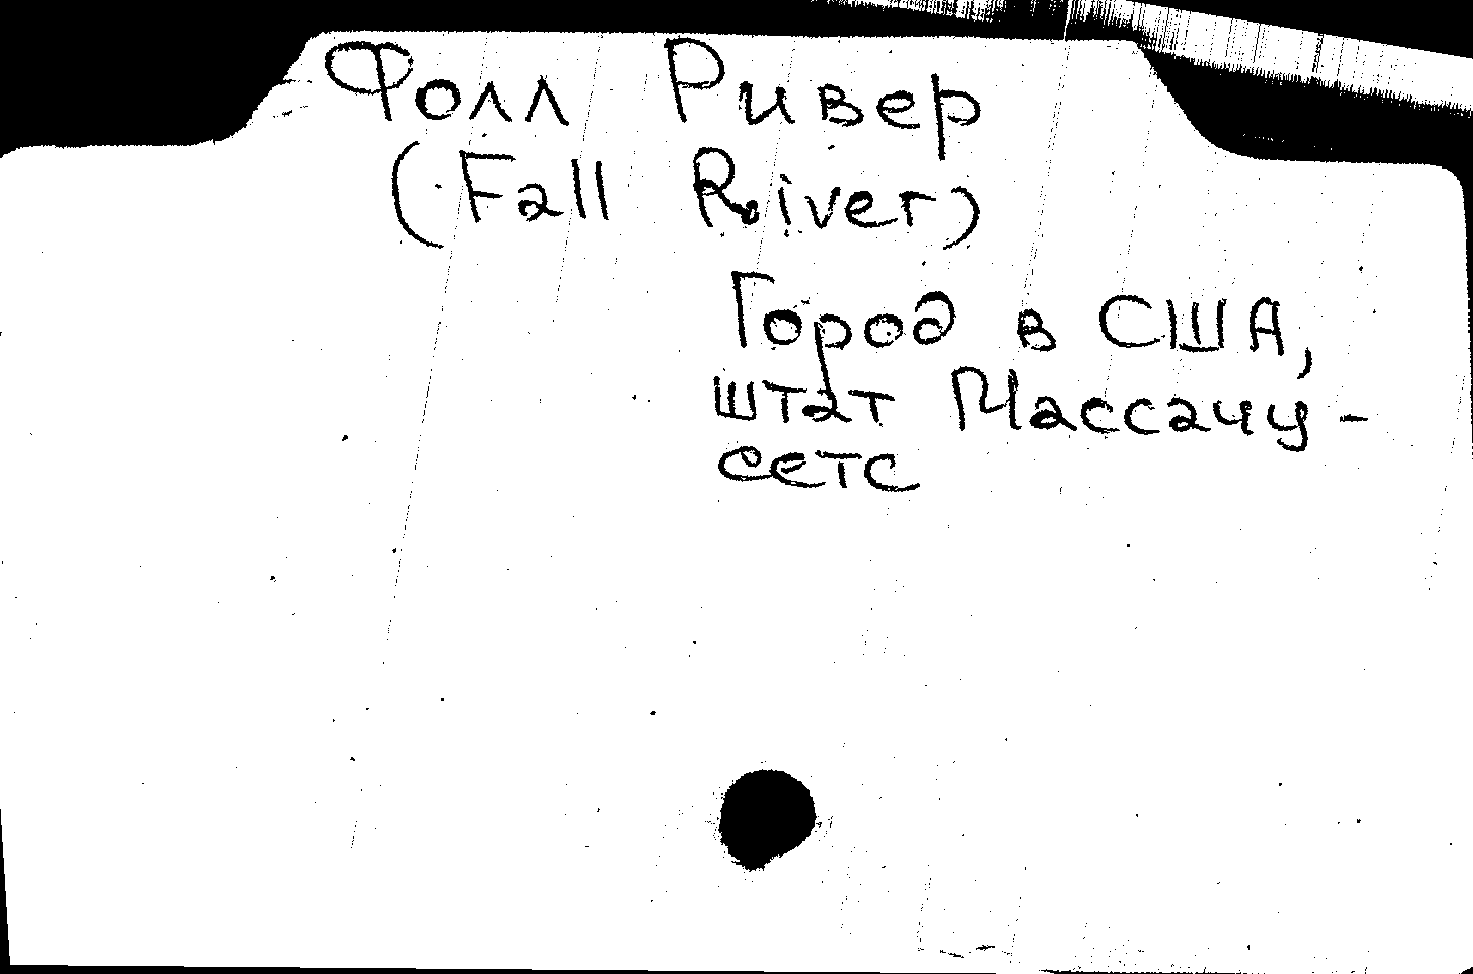 Фолл Ривер
(Fall River)
Город в США,
штат Массачу-
сетс